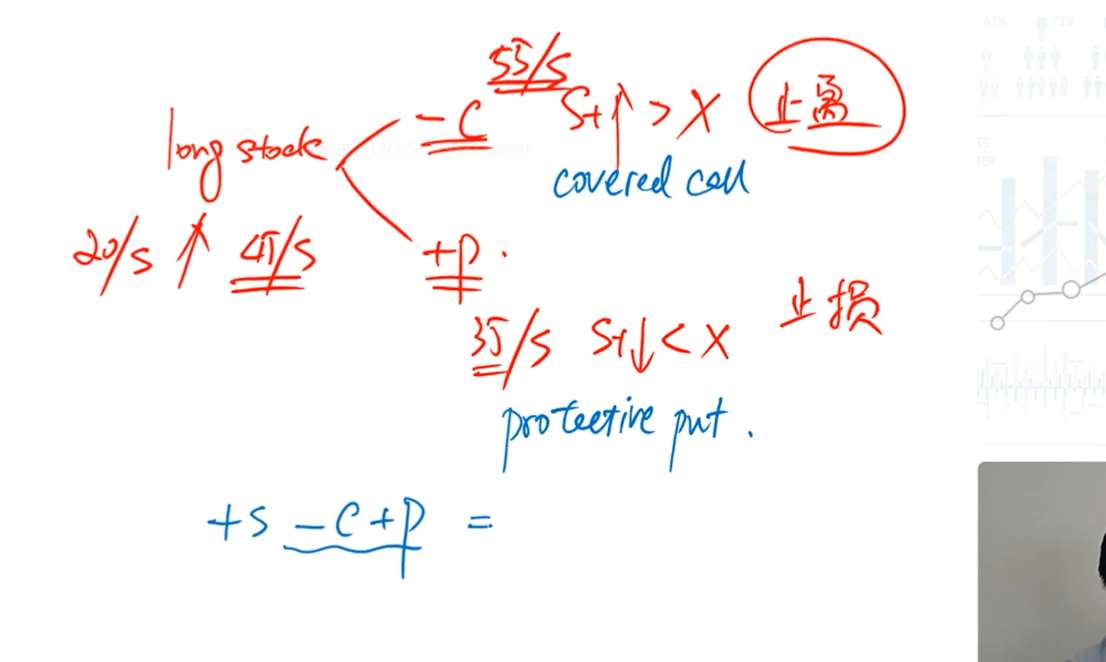 55/s
long stock -C St↑ > X 止赢
covered call
20/s ↑ 45/s +P.
35/s St↓ < X 止损
protective put.
+S -C+P =